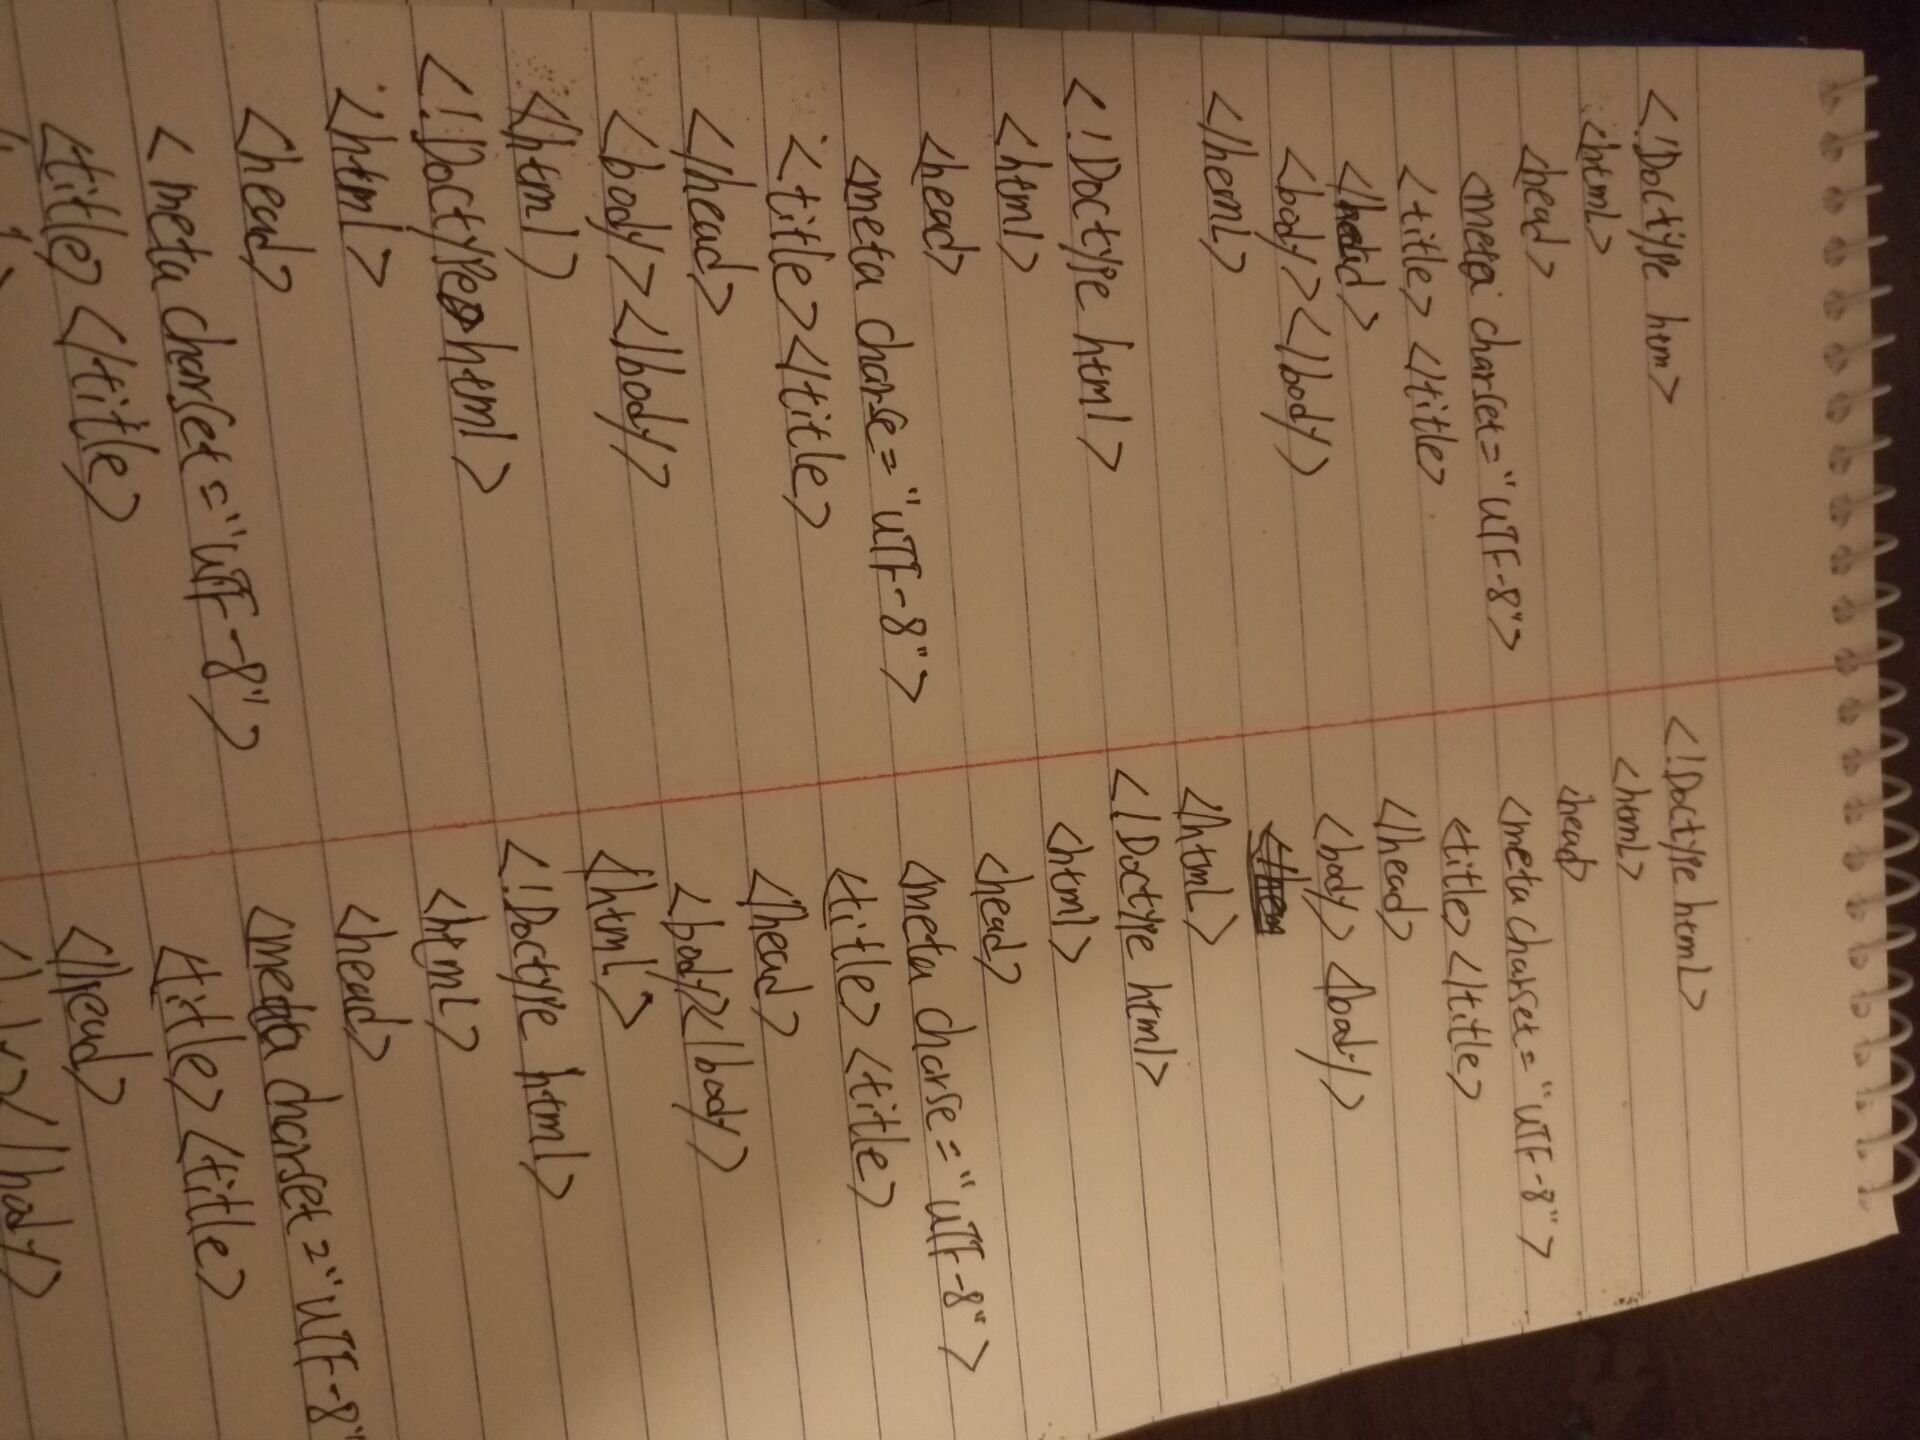 <!Doctype htm>
<html>
<head>
<meta charset="UTF-8">
<title></title>
</head>
<body></body>
</heml>
<!Doctype html>
<html>
<head>
<meta charse="UTF-8">
<title></title>
</head>
<body></body>
</html>
<!Doctype html>
<html>
<head>
<meta charset="UTF-8">
<title></title>
<!Doctype html>
<html>
<head>
<meta charset="UTF-8">
<title></title>
</head>
<body></body>
</html>
<!Doctype html>
<html>
<head>
<meta charse="UTF-8">
<title><title>
</head>
<body></body>
</html>
<!Doctype html>
<html>
<head>
<meta charset="UTF-8"
<title><title>
</head>
</body>